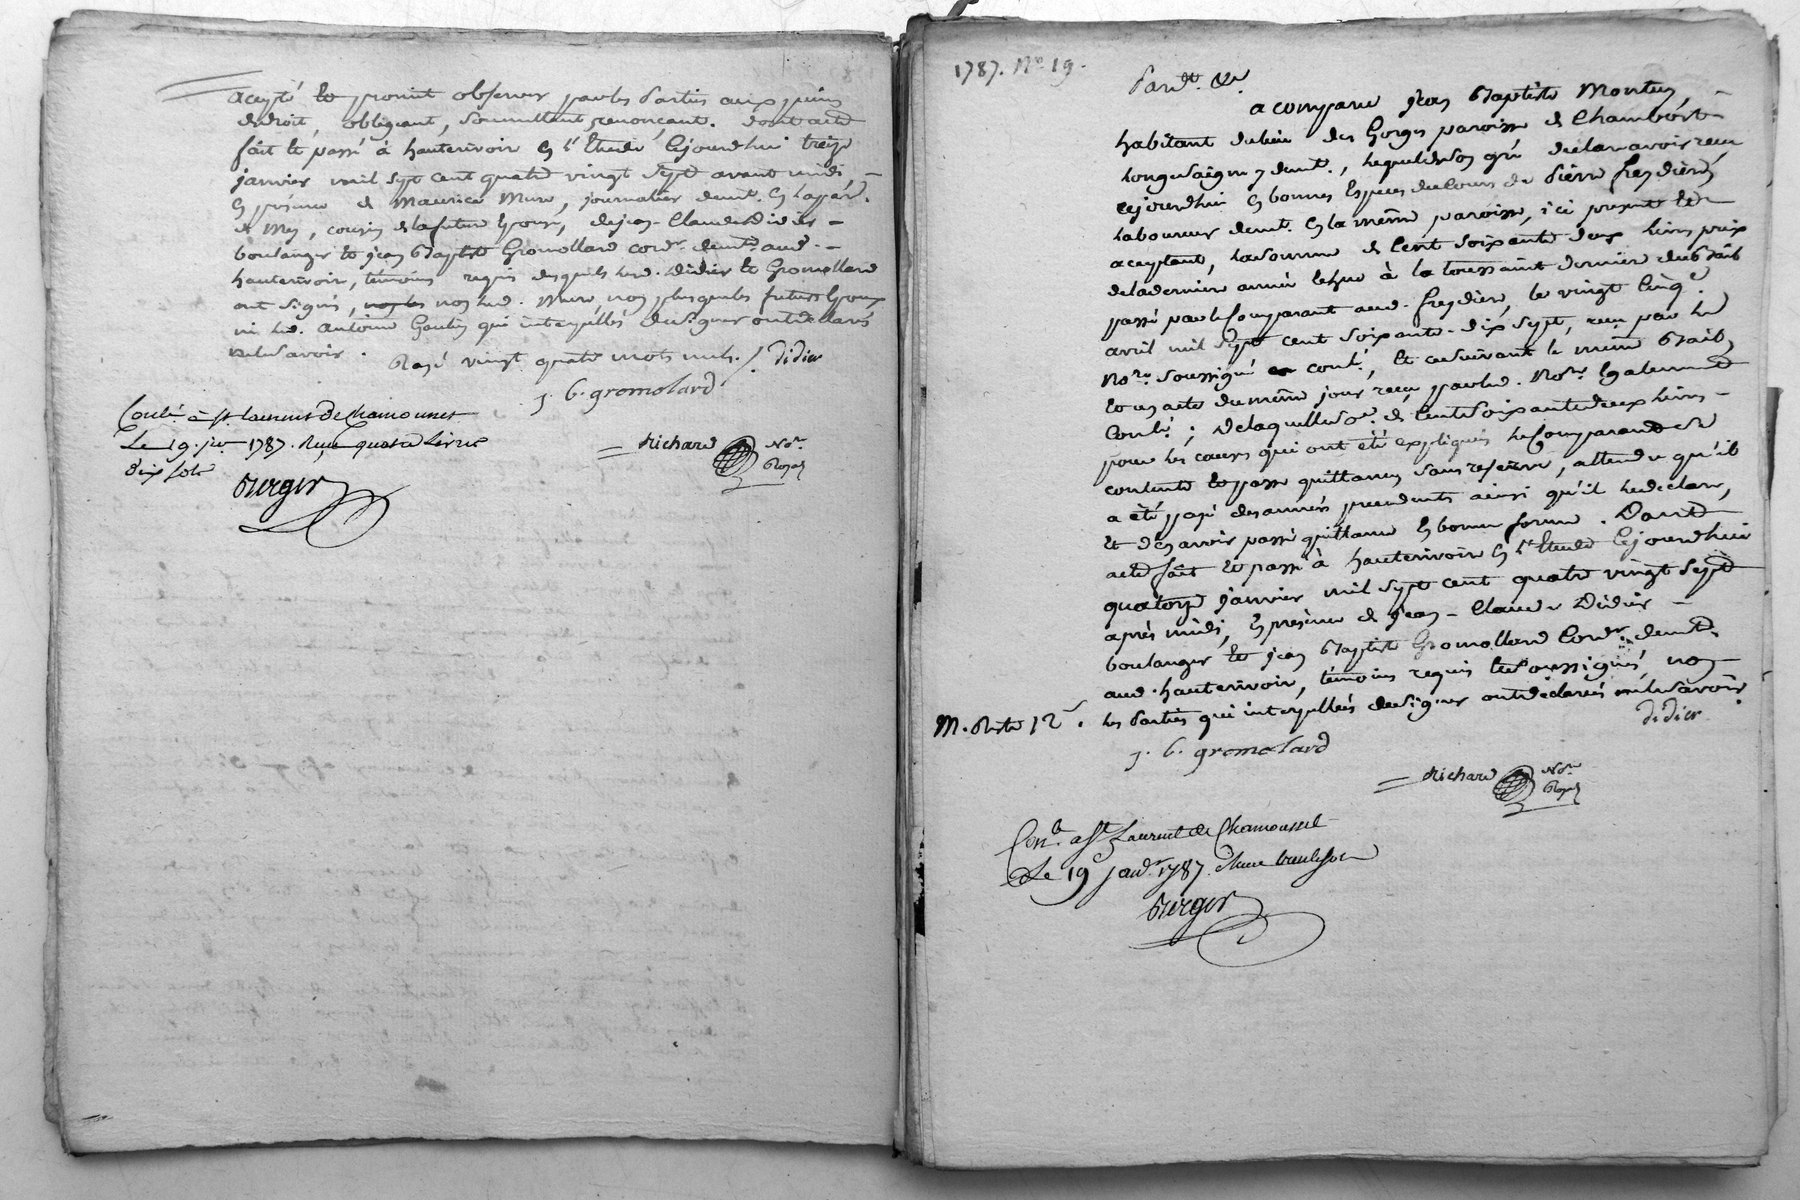 accepté et promit observer par les parties aux peines
de droit, obligeant, soumettant, renonçant. dont acte
fait et passé à hauterivoir en l'Etude cejourdhui treize
janvier mil sept cent quatre vingt sept avant midi,
en présence de Maurice Mure, journalier demt. en la par.
de Mey, cousin de la future Epouse, de jean-Claude Didier
boulanger et jean Baptiste Gromollard cordr. demts. aud.
hauterivoir, témoins requis desquels led. Didier et Gromollard
ont signés, non led. Mure, non plus que les futurs Epoux
ni led. antoine Goutin qui interpellés de signer ont déclarés
ne le savoir.
Rayé vingt quatre mots nuls. /. didier
j. b. gromolard
Richard Nore.
Royal
Contlé. à st. laurens de chamousset
Le 19. jer. 1787. Reçu quatre livres
dix sols
Berger
1787. No. 19.
Pardt. &a.
a comparu jean Baptiste Montus,
habitant du lieu des Gorges paroisse de Chambost
longesaigne y demt., lequel de son gré déclare avoir reçu
cejourdhui en bonnes Especes du cours de Pierre freydiere,
laboureur demt. en la même paroisse, ici présent et
acceptant, la somme de Cent soixante deux livres prix
de la derniere année echue à la toussaint derniere du Bail
passé par le Comparant aud. freydiere, le vingt cinq
avril mil sept cent soixante-dix sept, reçu par led
Nore. soussigné contlé., Et ce suivant le même Bail
et un acte du même jour reçu par led. Nore. Egalement
Contlé.; De laquelle se. de Cent soixante deux livres
pour les causes qui ont été expliquées le Comparant est
content et passe quittance sans reserve, attendu qu'il
a été payé des années precedentes ainsi qu'il le declare,
Et d'en avoir passé quittance en bonne forme. Dont
acte fait et passé à hauterivoir en l'Etude cejourdhui
quatorze janvier mil sept cent quatre vingt sept
après midi, En présence de jean-Claude Didier
boulanger et jean Baptiste Gromollard Cordr. demts.
aud. hauterivoir, témoins requis et soussignés, non
M. Reste 12s. les parties qui interpellées de signer ont déclarées ne le savoir.
didier
j. b. gromolard
Richard Nore
Royal
Conle. a st. Laurent de Chamousset
Le 19 janr. 1787.
Berger